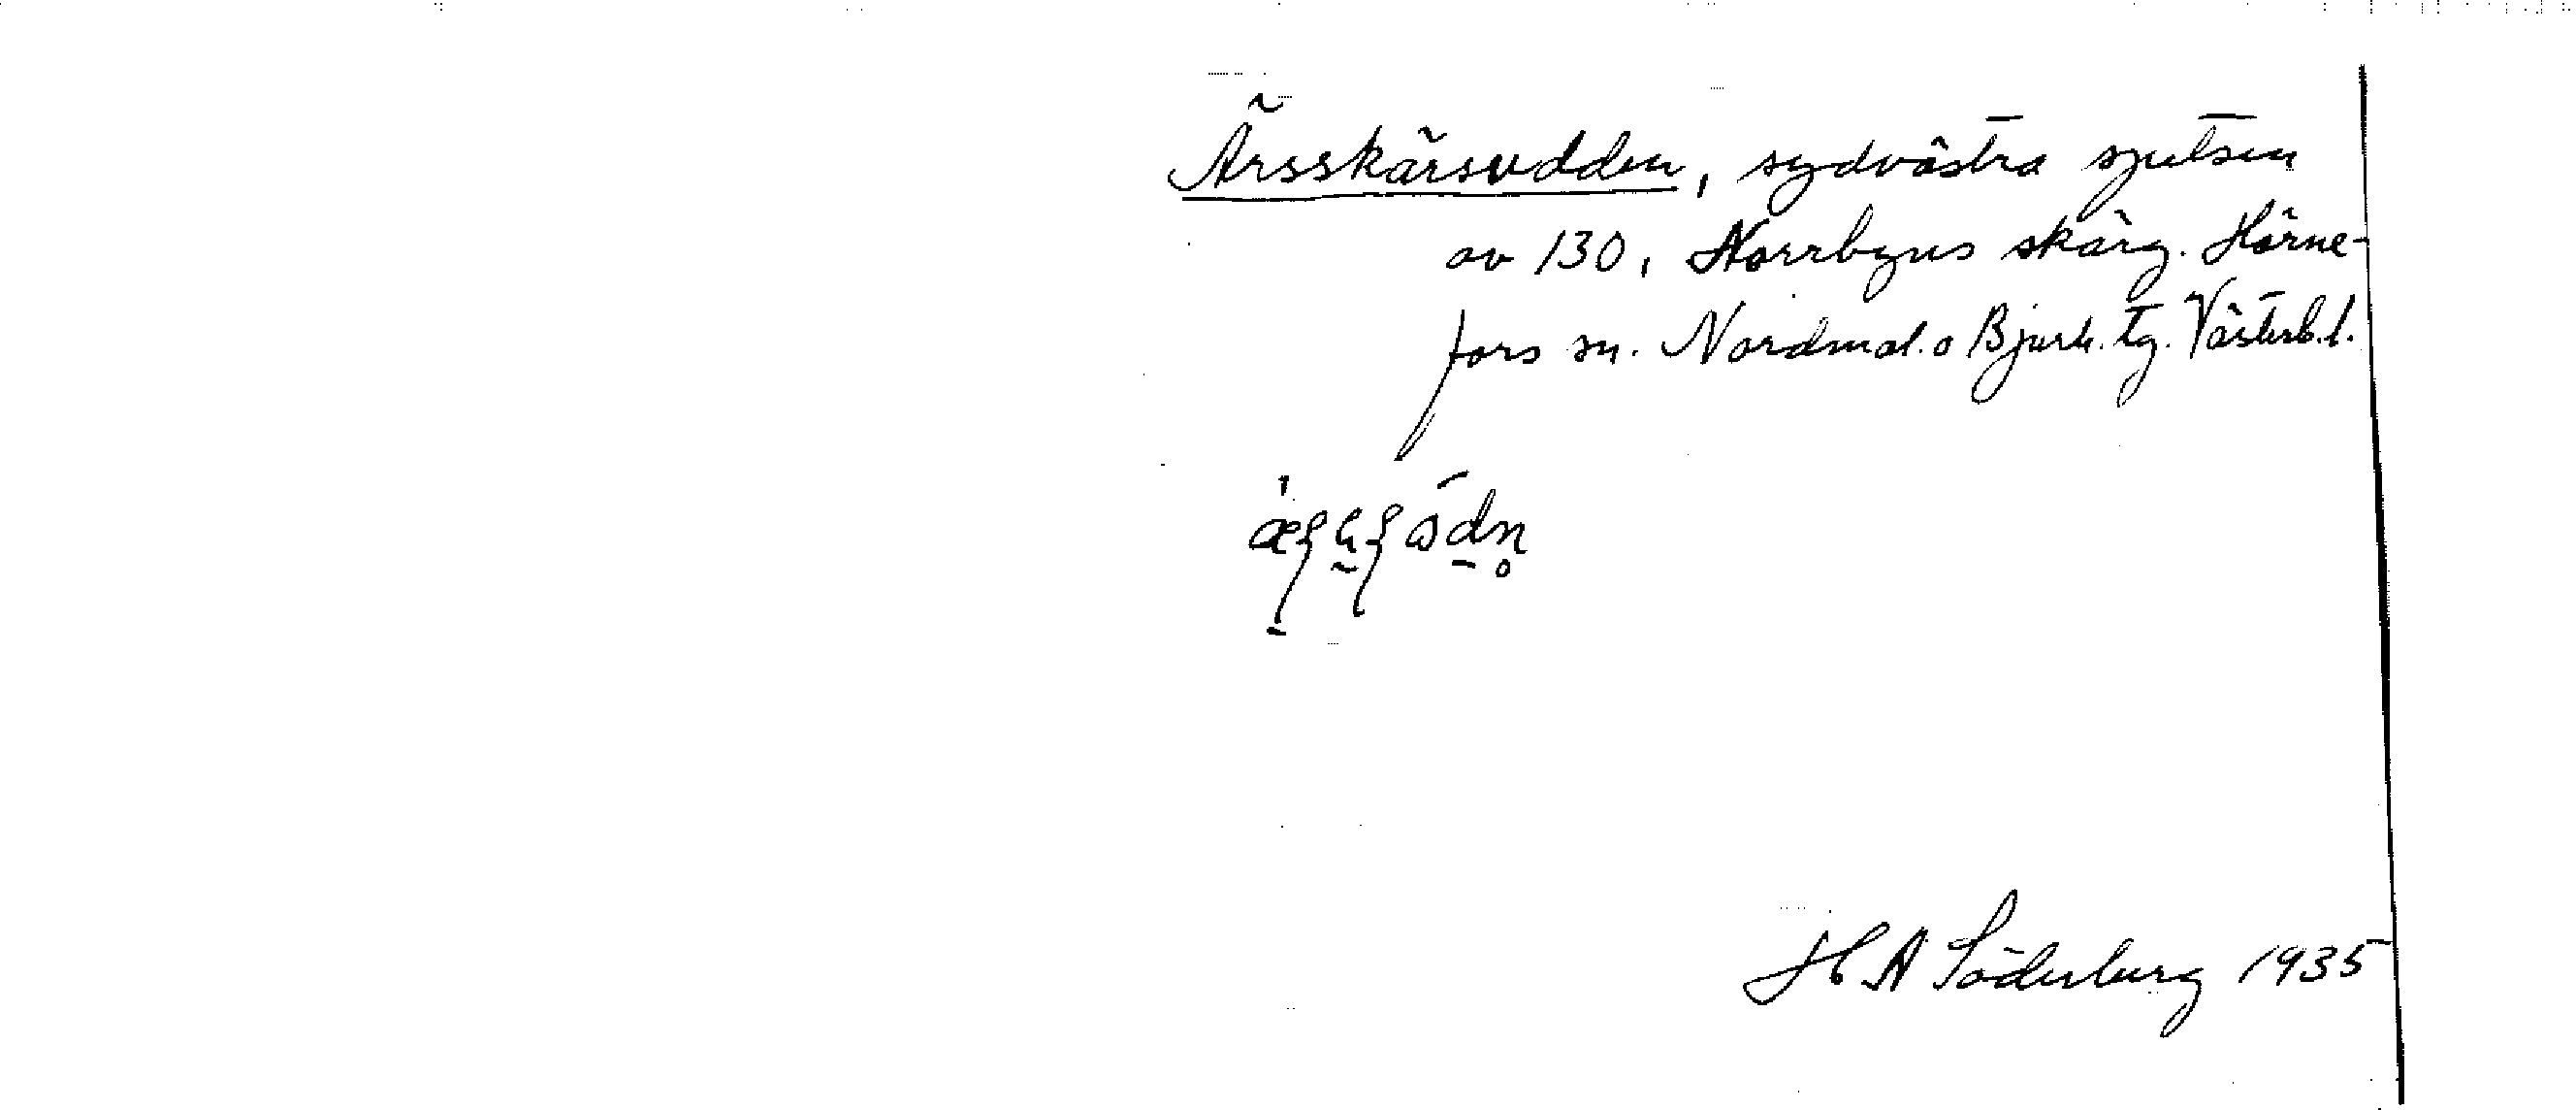 Ärsskärsudden, sydvästra spetsen
av 130, Norrbyns skärg. Hörne-
fors sn. Nordmal. o Bjurh. tg. Västerb. l.
H A Söderberg 1935